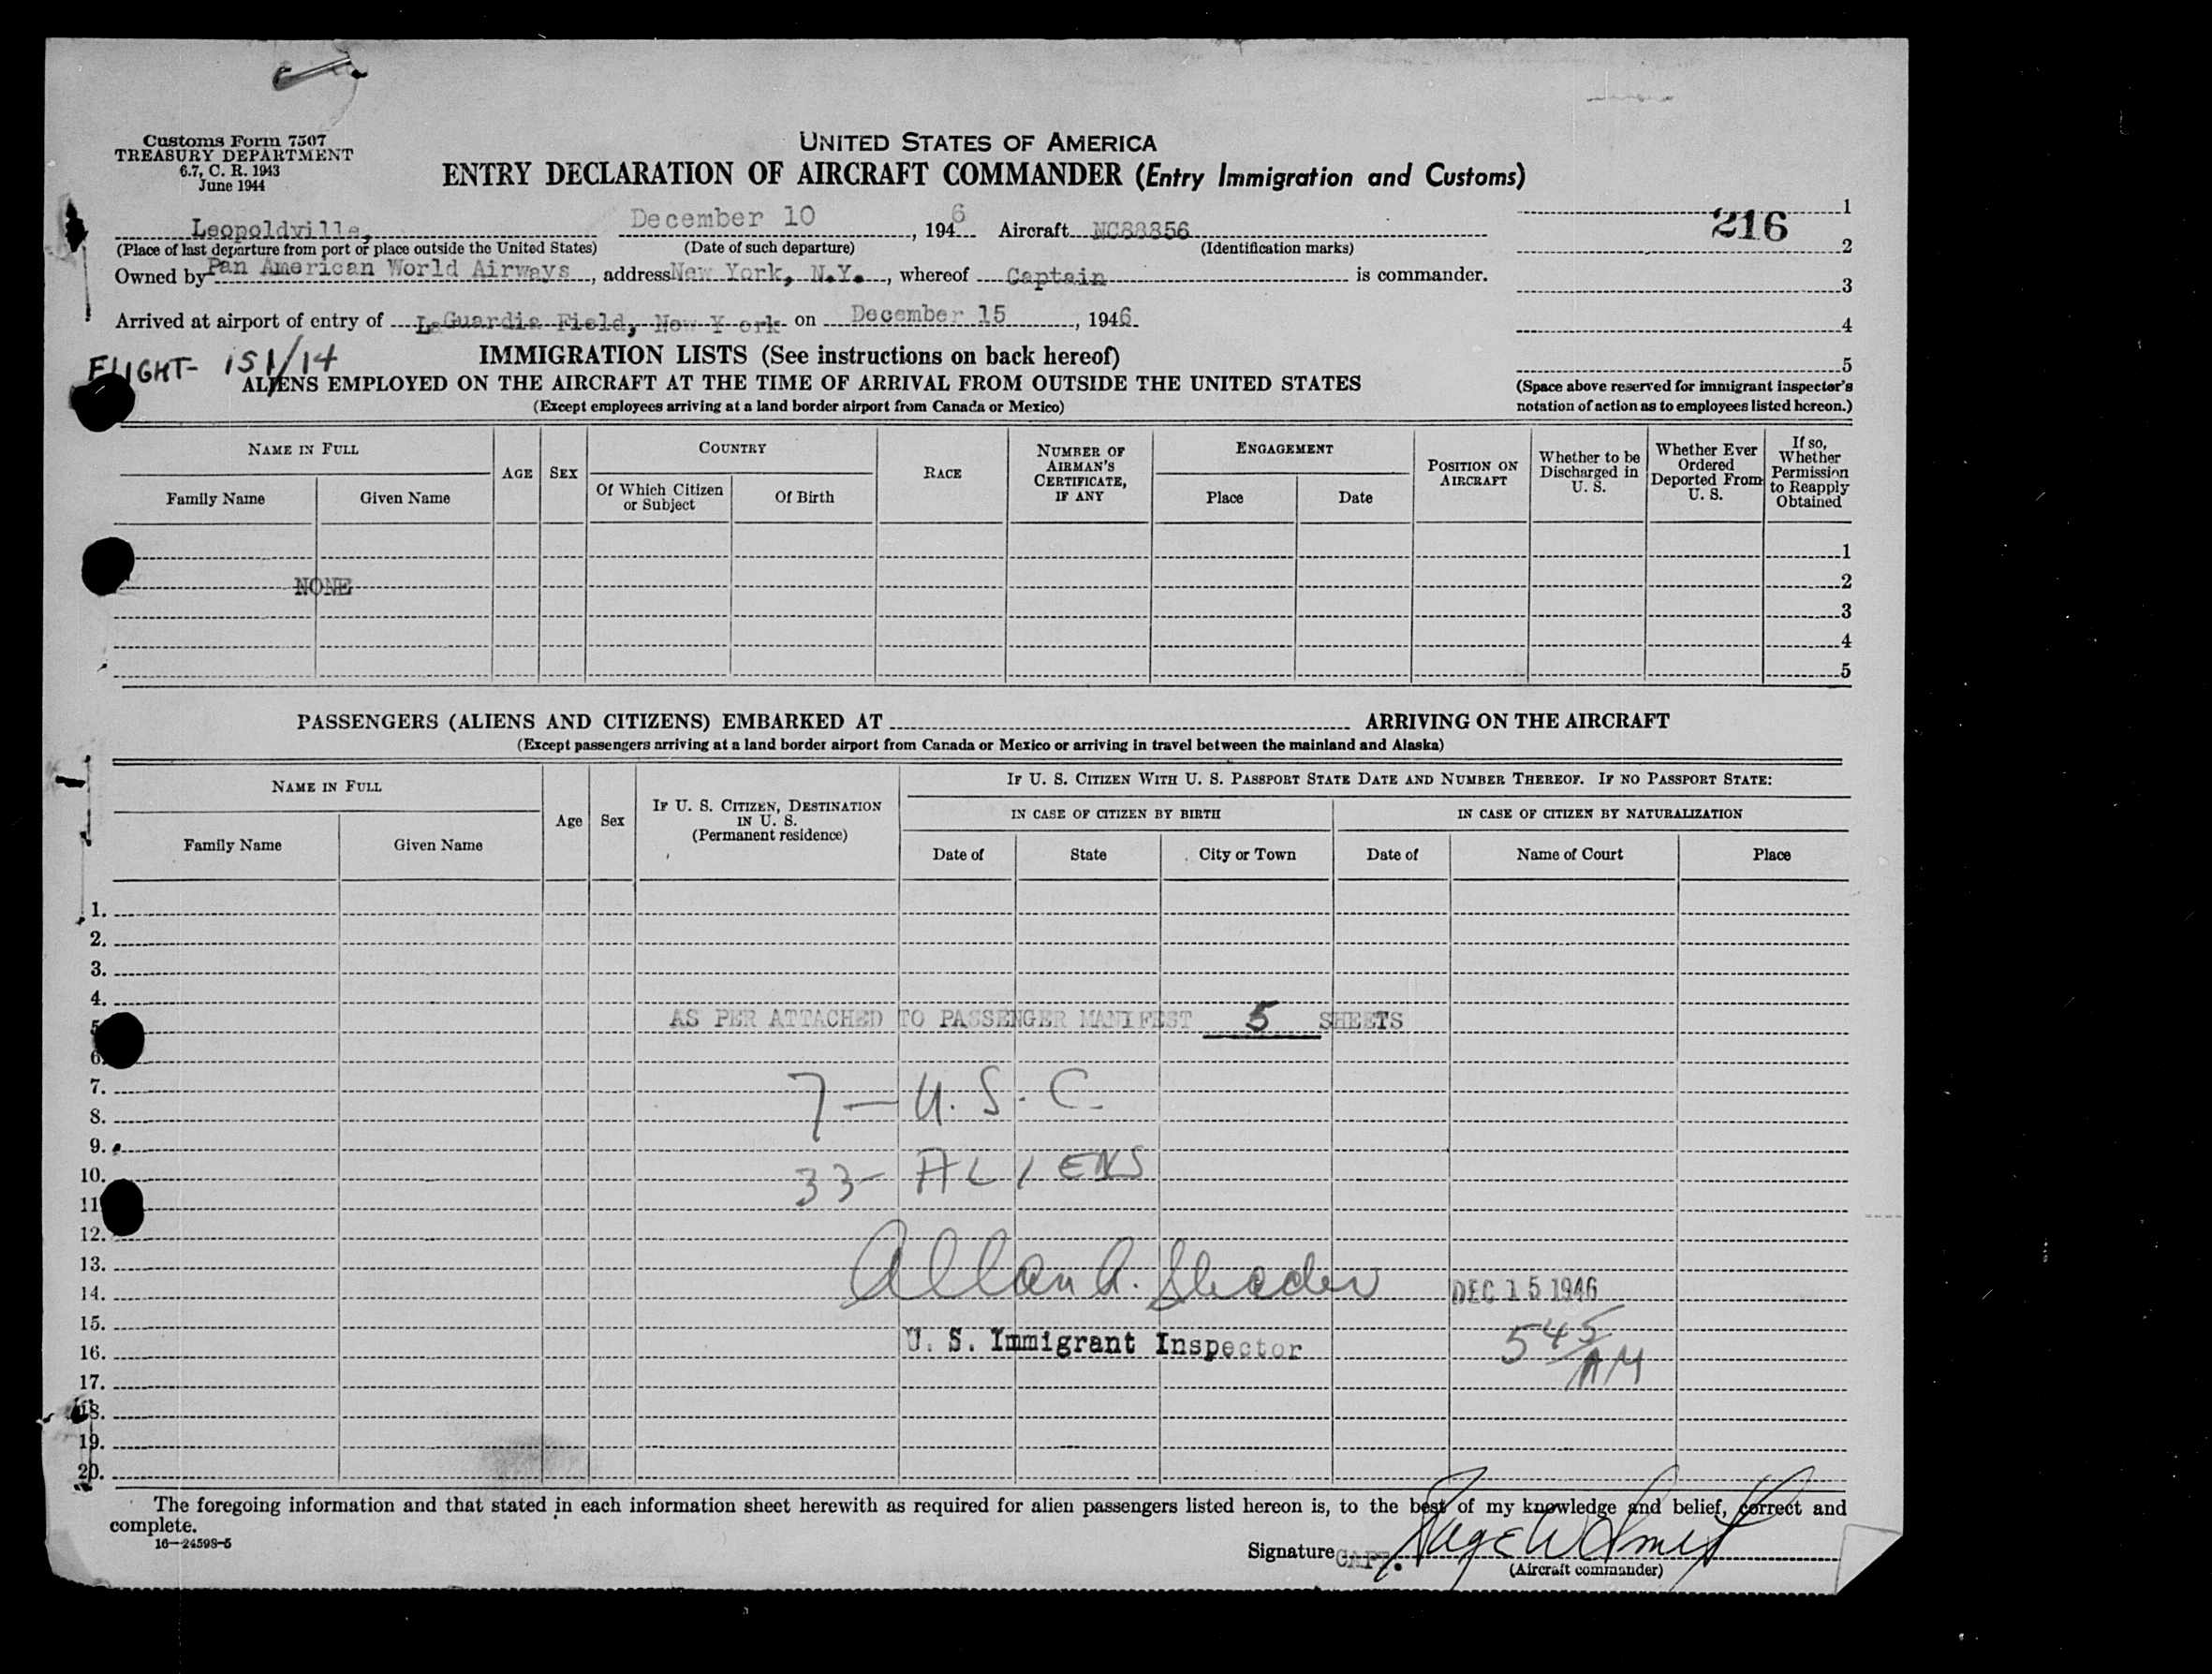 Customs Form 7507
TREASURY DEPARTMENT
6.7, C. R. 1943
June 1944
UNITED STATES OF AMERICA
ENTRY DECLARATION OF AIRCRAFT COMMANDER (Entry Immigration and Customs)
Leopoldville, December 10, 1946 Aircraft NC88856
(Place of last departure from port or place outside the United States) (Date of such departure) (Identification marks)
Owned by Pan American World Airways, address New York, N.Y., whereof Captain is commander.
Arrived at airport of entry of LaGuardia Field, New York on December 15, 1946
216
1
2
3
4
5
(Space above reserved for immigrant inspector's
notation of action as to employees listed hereon.)
FLIGHT- 151/14
IMMIGRATION LISTS (See instructions on back hereof)
ALIENS EMPLOYED ON THE AIRCRAFT AT THE TIME OF ARRIVAL FROM OUTSIDE THE UNITED STATES
(Except employees arriving at a land border airport from Canada or Mexico)
NAME IN FULL
Family Name
Given Name
AGE
SEX
COUNTRY
Of Which Citizen
or Subject
Of Birth
RACE
NUMBER OF
AIRMAN'S
CERTIFICATE,
IF ANY
ENGAGEMENT
Place
Date
POSITION ON
AIRCRAFT
Whether to be
Discharged in
U. S.
Whether Ever
Ordered
Deported From
U. S.
If so,
Whether
Permission
to Reapply
Obtained
1
NONE 2
3
4
5
PASSENGERS (ALIENS AND CITIZENS) EMBARKED AT ARRIVING ON THE AIRCRAFT
(Except passengers arriving at a land border airport from Canada or Mexico or arriving in travel between the mainland and Alaska)
NAME IN FULL
Family Name
Given Name
Age
Sex
IF U. S. CITIZEN, DESTINATION
IN U. S.
(Permanent residence)
IF U. S. CITIZEN WITH U. S. PASSPORT STATE DATE AND NUMBER THEREOF. IF NO PASSPORT STATE:
IN CASE OF CITIZEN BY BIRTH
Date of
State
City or Town
IN CASE OF CITIZEN BY NATURALIZATION
Date of
Name of Court
Place
1.
2.
3.
4.
5 AS PER ATTACHED TO PASSENGER MANIFEST 5 SHEETS
6.
7. 7 - U. S. C.
8.
9.
10. 33- ALIENS
11
12.
13.
14. DEC 15 1946
15.
16. U. S. Immigrant Inspector 5 45/AM
17.
18.
19.
20.
The foregoing information and that stated in each information sheet herewith as required for alien passengers listed hereon is, to the best of my knowledge and belief, correct and
complete.
16—24598-5
Signature CAPT.
(Aircraft commander)